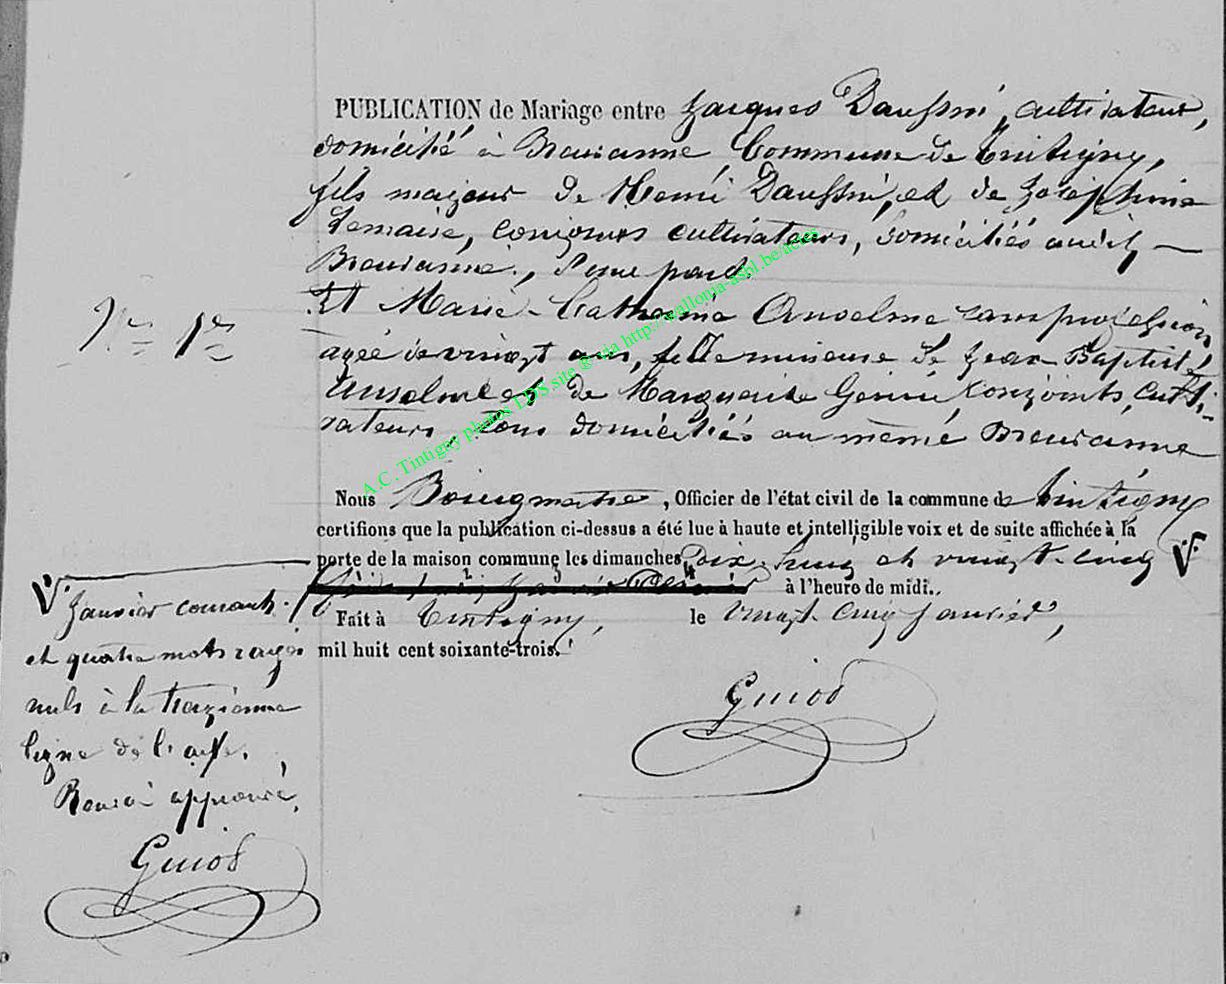 PUBLICATION de Mariage entre Jacques Daussin, cultivateur,
domicilié à Breuvanne Commune de Tintigny,
fils majeur de Henri Daussin, et de Joséphine
Lemaire, conjoints cultivateurs, domiciliés audit
Breuvanne, d'une part.
Et Marie-Catherine Anselme sans profession
agée de vingt ans, fille mineure de Jean Baptiste
Anselme et de Marguerite conjoints culti-
vateurs, tous domiciliés au même Breuvanne
No 1er
Nous Bourgmestre, Officier de l'état civil de la commune de Tintigny
certifions que la publication ci-dessus a été lue à haute et intelligible voix et de suite affichée à la
porte de la maison commune les dimanches Dix-huit et vingt-cinq V
à l'heure de midi.
Fait à Tintigny, le vingt cinq Janvier,
mil huit cent soixante-trois.
Guiod
V Janvier courant.
et quatre mots rayés
nuls à la treizième
ligne de l'acte.
Renvoi approuvé,
Guiod
A.C. Tintigny photos LDS.site @ via http://wallonia-asbl.be/actes